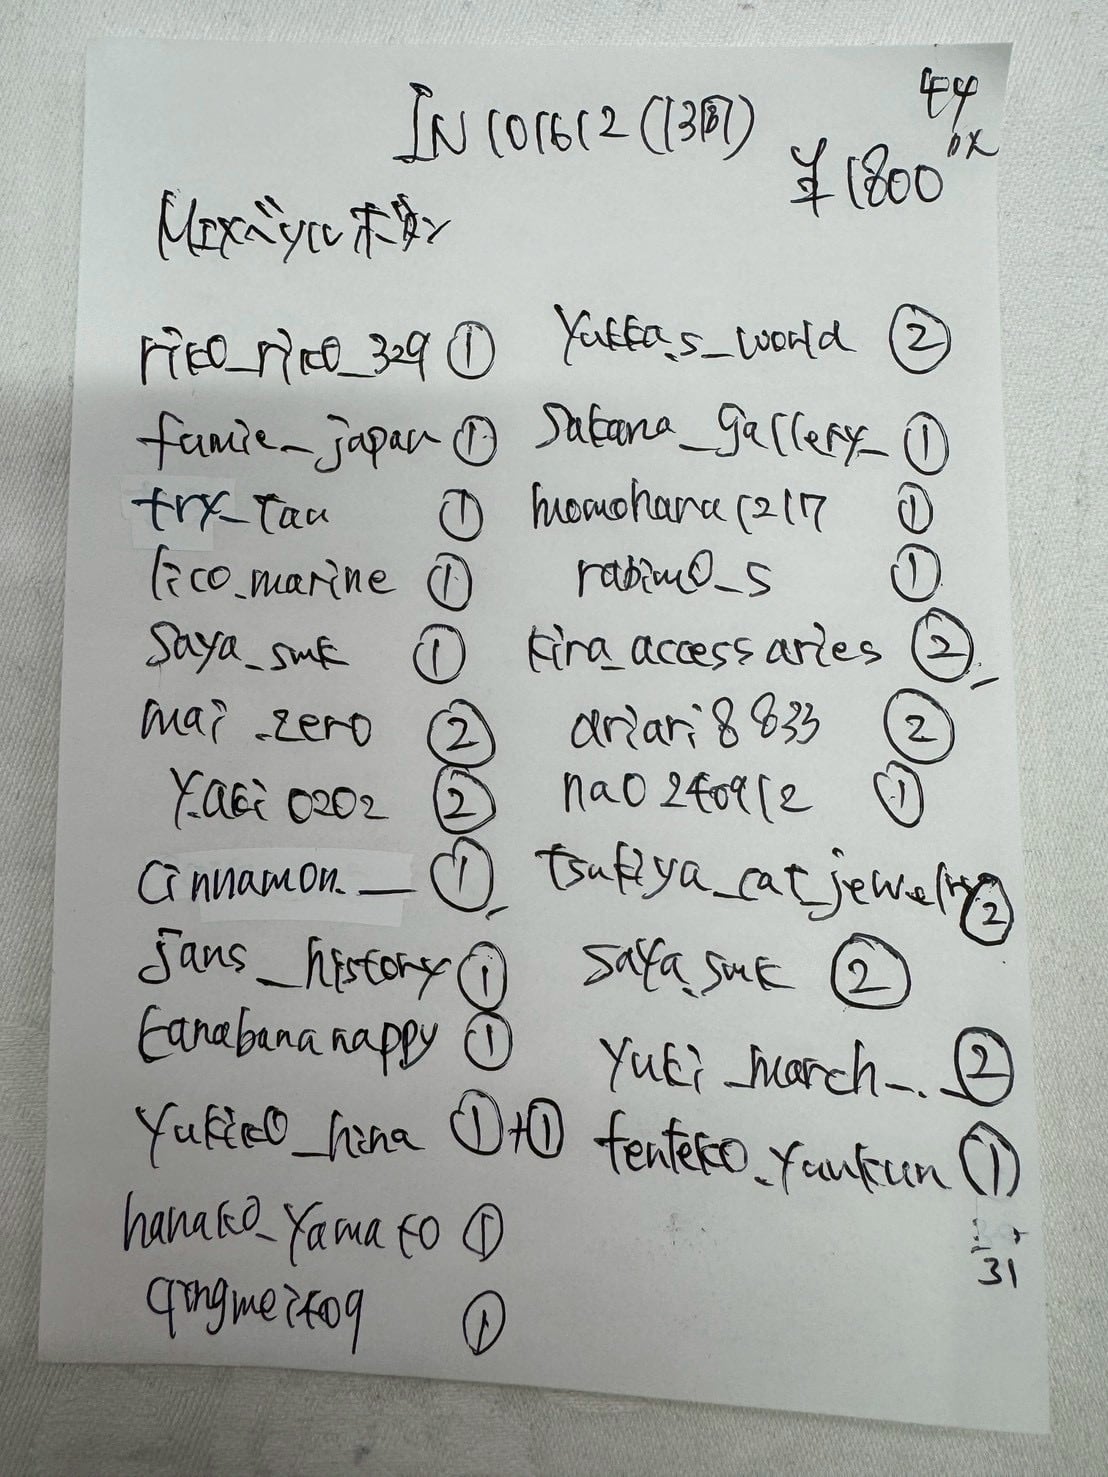 44
IN 101612 (13問)
¥1800
rico_rico_329 ①
fumie_japan ①
try_tau ①
lico_marine ①
saya_smk ①
mai_zero ②
y.aki0202 ②
cinnamon._ ①
jans_history ①
kanabananappy ①
yukiko_hina ①+①
hanako_yamato ①
qingmei409 ①
yukka.s_world ②
sakana_gallery_ ①
momohana1217 ①
rabimo_s ①
kira_accessaries ②
ariari8833 ②
nao240912 ①
tsukiya_cat_jewelry ②
saya.smk ②
yuki_march_._ ②
tenteko.yankun ①
31